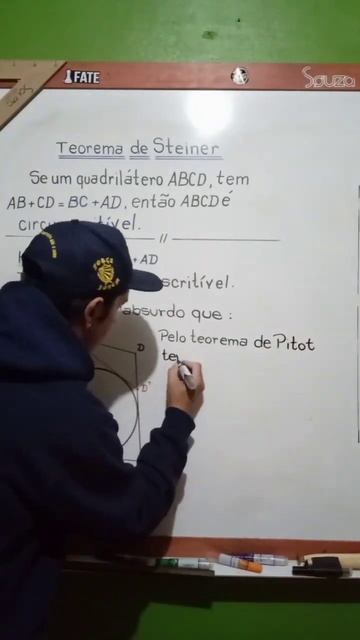 FATE
Souza
Teorema de Steiner
Se um quadrilátero ABCD, tem
AB+CD = BC +AD, então ABCD é
+ AD
scritível.
absurdo que :
Pelo teorema de Pitot
te
D
D'